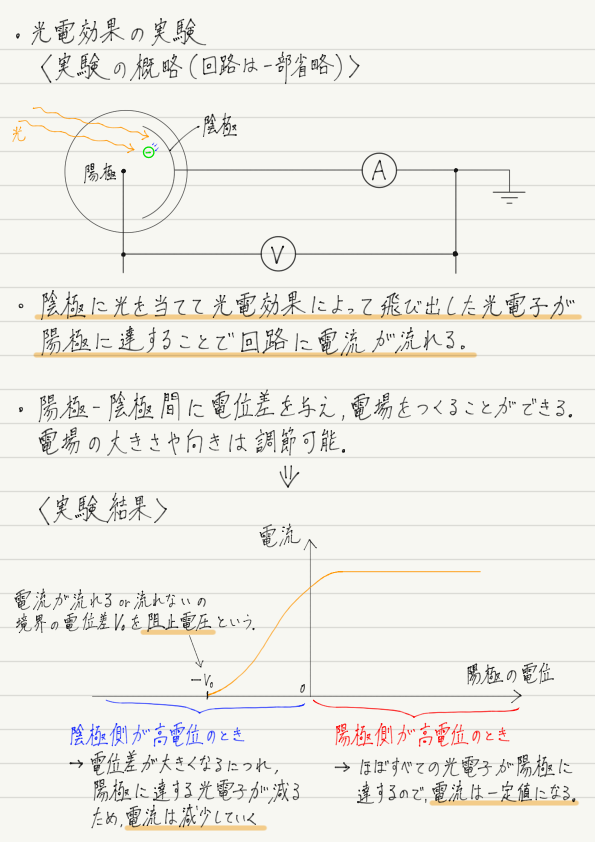 ・光電効果の実験
〈実験の概略(回路は一部省略)〉
光
陰極
陽極
A
V
・陰極に光を当てて光電効果によって飛び出した光電子が
陽極に達することで回路に電流が流れる。
・陽極-陰極間に電位差を与え,電場をつくることができる.
電場の大きさや向きは調節可能.
⇓
〈実験結果〉
電流
電流が流れるor流れないの
境界の電位差V₀を阻止電圧という.
-V₀
0
陽極の電位
陰極側が高電位のとき
→ 電位差が大きくなるにつれ,
陽極に達する光電子が減る
ため,電流は減少していく
陽極側が高電位のとき
→ ほぼすべての光電子が陽極に
達するので,電流は一定値になる。